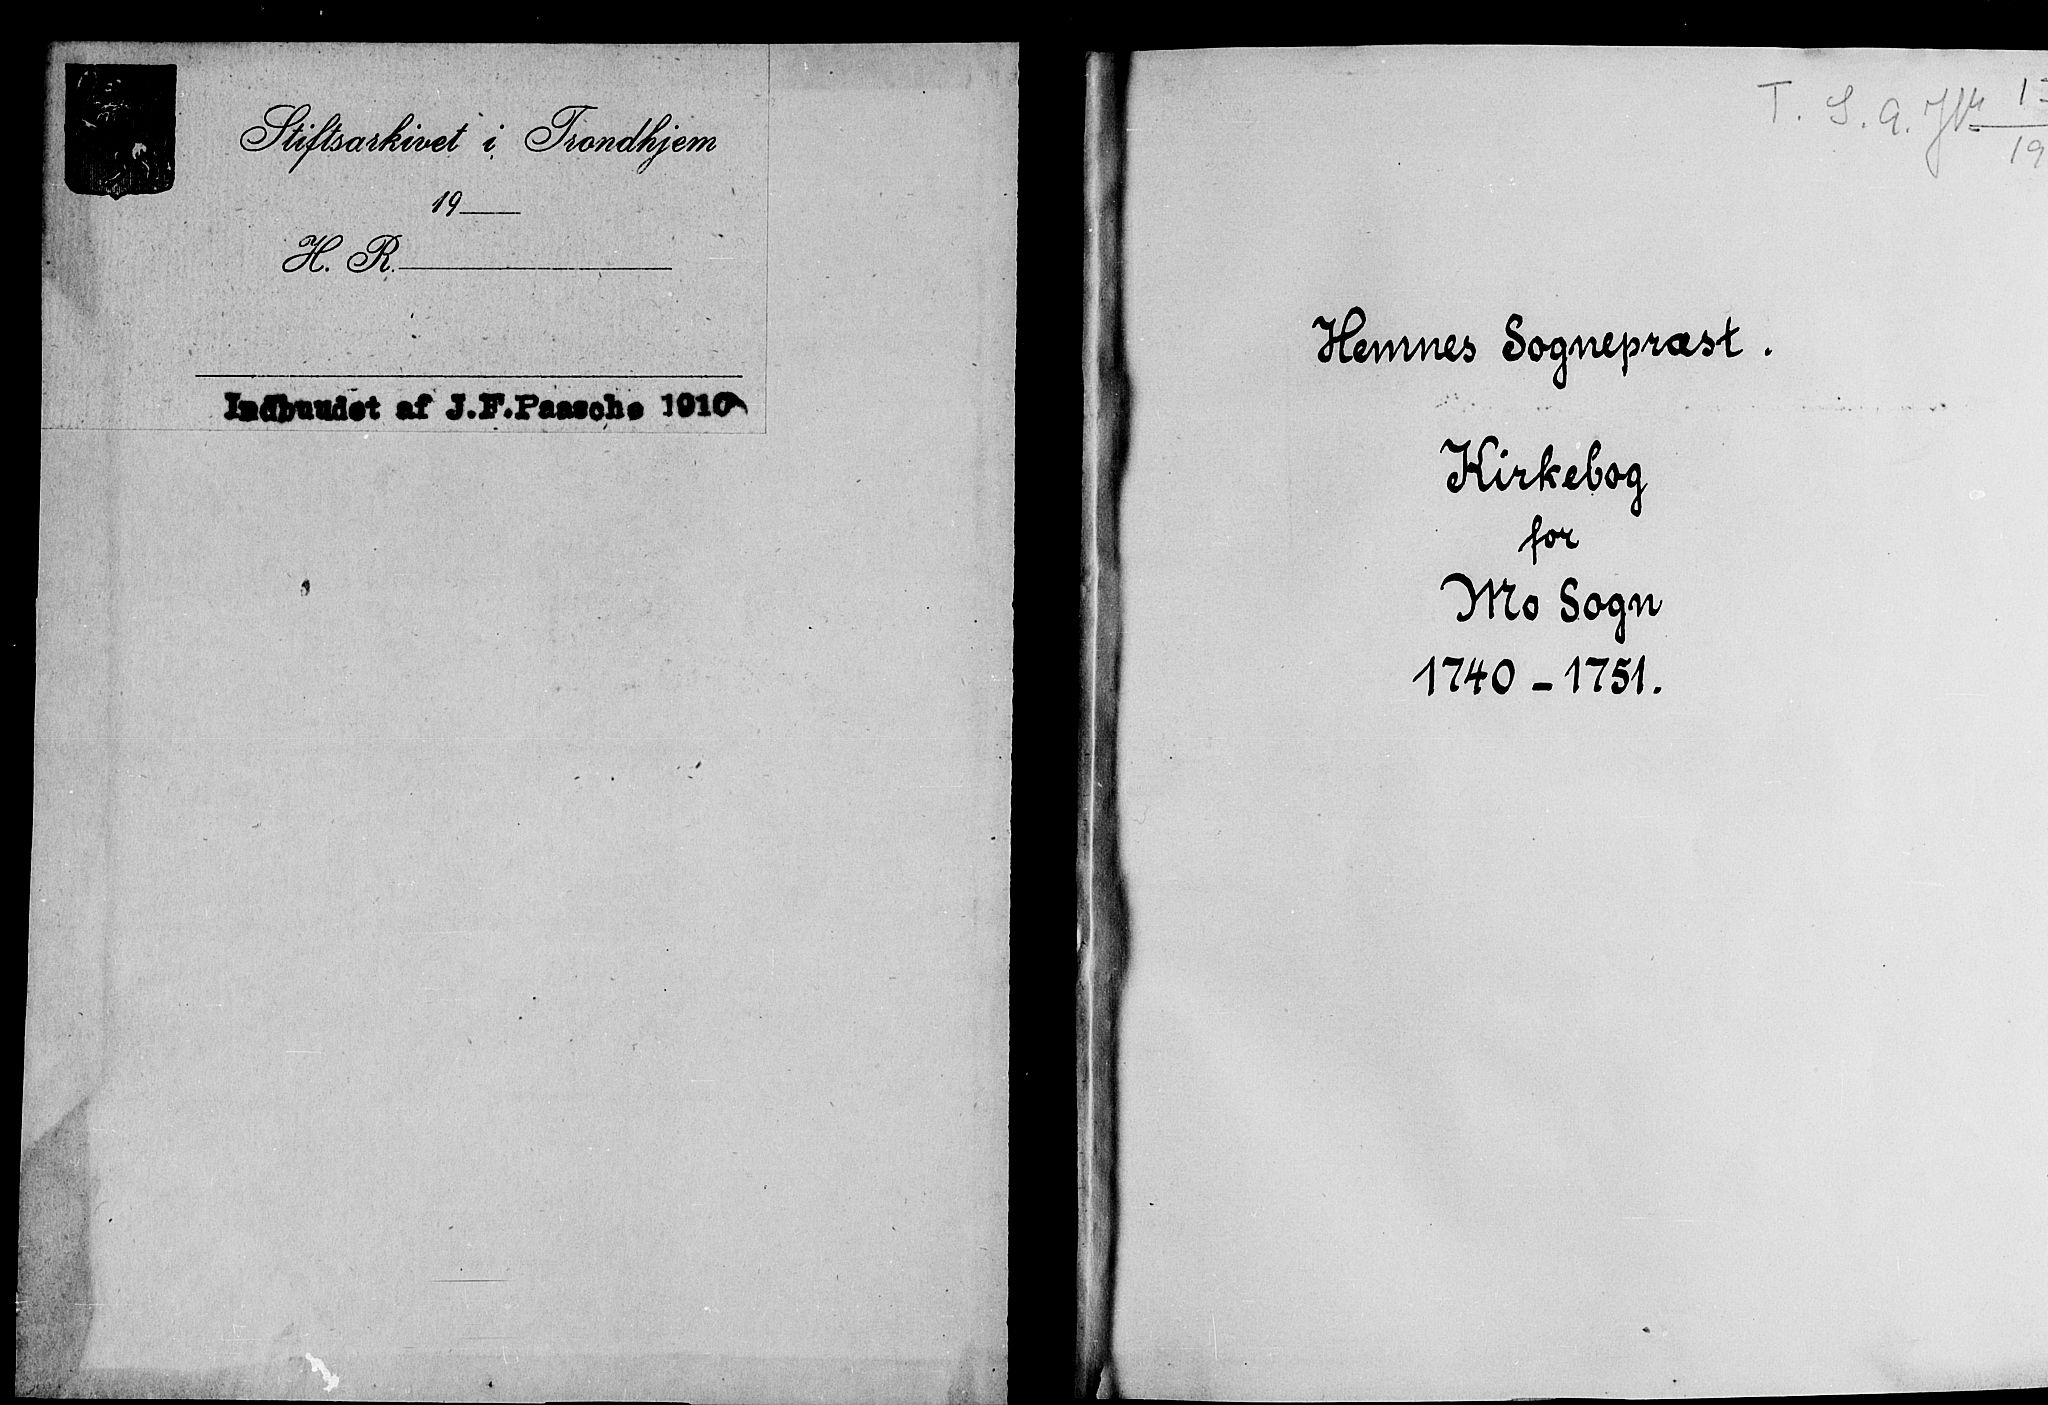 Stiftsarkivet i Trondhjem
19
H. R.
Indbundet af J.F.Paasche 1910
T. S. a.
Hemnes Sognepræst.
Kirkebog
for
Mo Sogn
1740 - 1751.